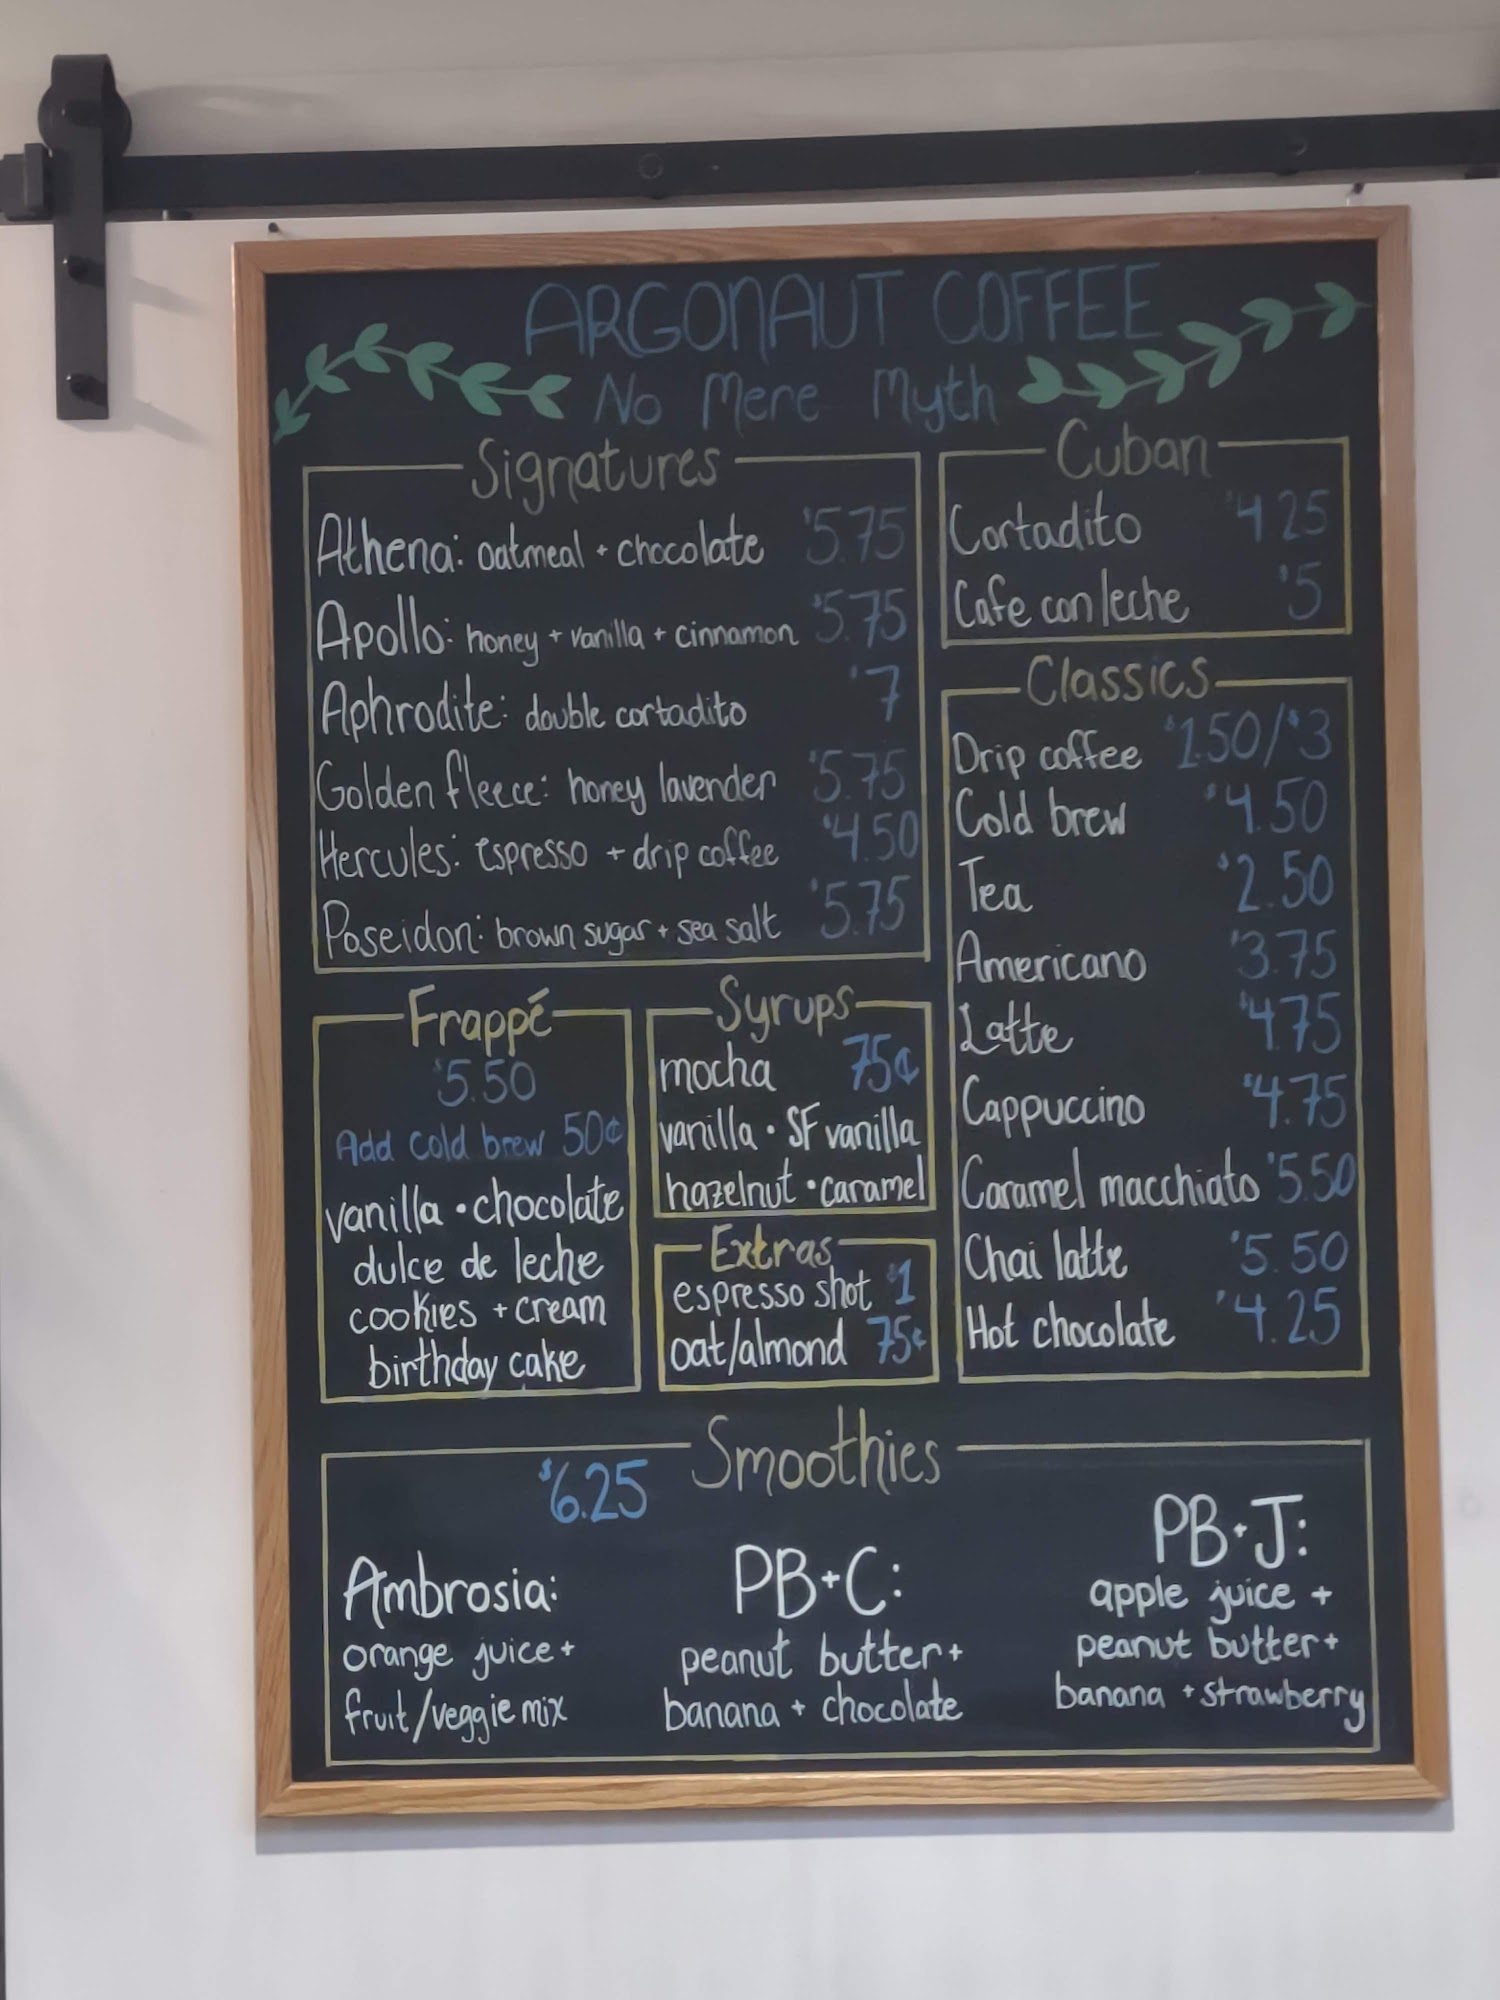 ARGONAUT COFFEE
No Mere Myth
Signatures
Athena: oatmeal + chocolate $5.75
Apollo: honey + vanilla + cinnamon $5.75
Aphrodite: double cortadito $7
Golden fleece: honey lavender $5.75
Hercules: espresso + drip coffee $4.50
Poseidon: brown sugar + sea salt $5.75
Cuban
Cortadito $4.25
Cafe con leche $5
Classics
Drip coffee $1.50/$3
Cold brew $4.50
Tea $2.50
Americano $3.75
Latte $4.75
Cappuccino $4.75
Caramel macchiato $5.50
Chai latte $5.50
Hot chocolate $4.25
Frappé
$5.50
Add cold brew 50¢
vanilla • chocolate
dulce de leche
cookies + cream
birthday cake
Syrups
mocha 75¢
vanilla • SF vanilla
hazelnut • caramel
Extras
espresso shot $1
oat/almond 75¢
Smoothies
$6.25
Ambrosia:
orange juice +
fruit/veggie mix
PB+C:
peanut butter +
banana + chocolate
PB+J:
apple juice +
peanut butter +
banana + strawberry